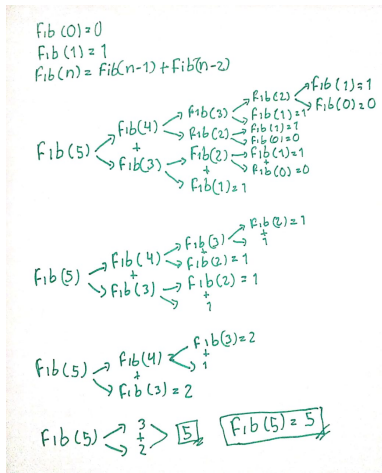 Fib (0) = 0
Fib (1) = 1
Fib(n) = Fib(n-1) + Fib(n-2)
Fib(2) → Fib(1) = 1
Fib(0) = 0
Fib(5) → Fib(4) → Fib(3) → Fib(1) = 1
Fib(2) → Fib(1) = 1
+ Fib(0) = 0
Fib(3) → Fib(2) → Fib(1) = 1
+ +
Fib(0) = 0
Fib(1) = 1
Fib(2) = 1
Fib(5) → Fib(4) → Fib(3) → +
+ + 1
Fib(2) = 1
Fib(3) → Fib(2) = 1
+
1
Fib(3) = 2
Fib(5) → Fib(4) +
+ 1
Fib(3) = 2
Fib(5) 3 + 2 > 5 Fib(5) = 5